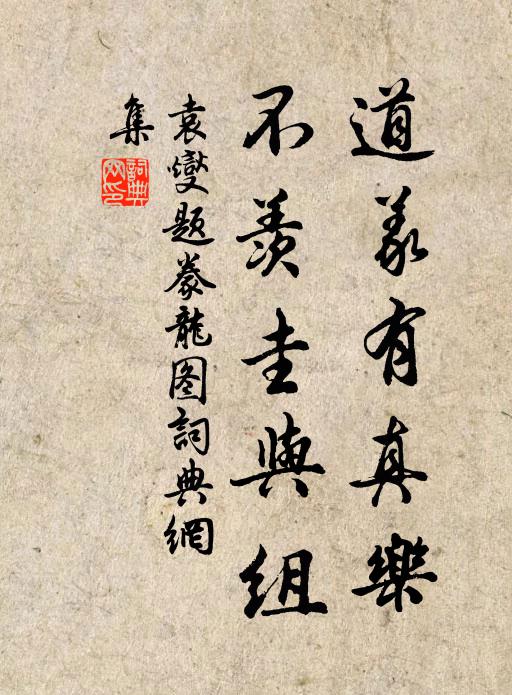 道義有真樂
不羨圭與組
袁燮題豢龍图詞典網
集
詞典
网印